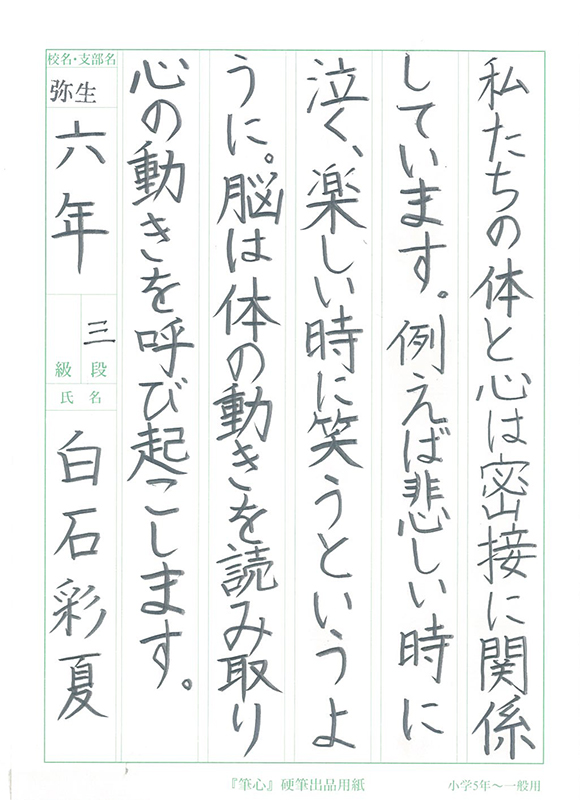 私たちの体と心は密接に関係
しています。例えば悲しい時に
泣く、楽しい時に笑うというよ
うに。脳は体の動きを読み取り
心の動きを呼び起こします。
校名・支部名
弥生
六年
三
級 段
氏名
白石彩夏
『筆心』硬筆出品用紙
小学5年～一般用